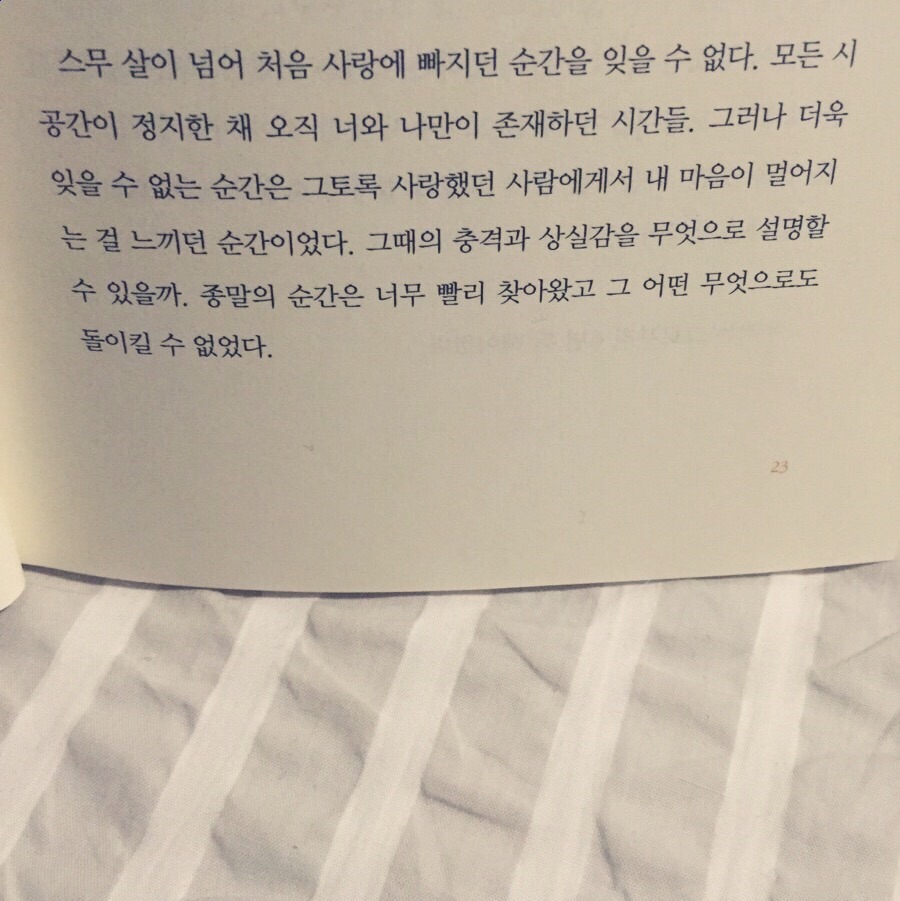 스무 살이 넘어 처음 사랑에 빠지던 순간을 잊을 수 없다. 모든 시
공간이 정지한 채 오직 너와 나만이 존재하던 시간들. 그러나 더욱
잊을 수 없는 순간은 그토록 사랑했던 사람에게서 내 마음이 멀어지
는 걸 느끼던 순간이었다. 그때의 충격과 상실감을 무엇으로 설명할
수 있을까. 종말의 순간은 너무 빨리 찾아왔고 그 어떤 무엇으로도
돌이킬 수 없었다.
23